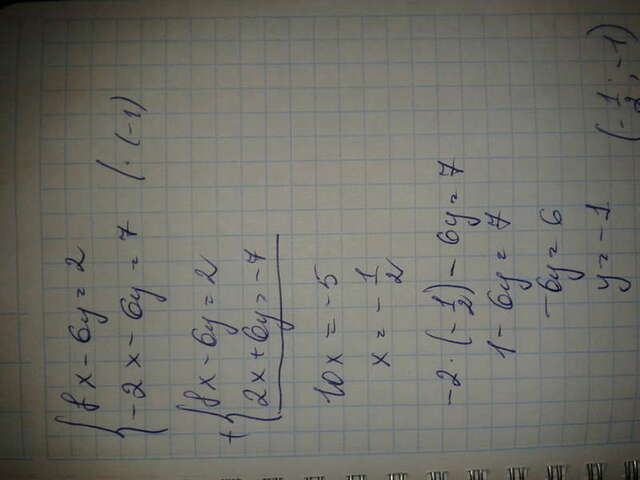 { 8x - 6y = 2
{ -2x - 6y = 7 | · (-1)
+ { 8x - 6y = 2
{ 2x + 6y = -7
10x = -5
x = - 1/2
-2 · (- 1/2) - 6y = 7
1 - 6y = 7
-6y = 6
y = -1
(- 1/2 ; -1)